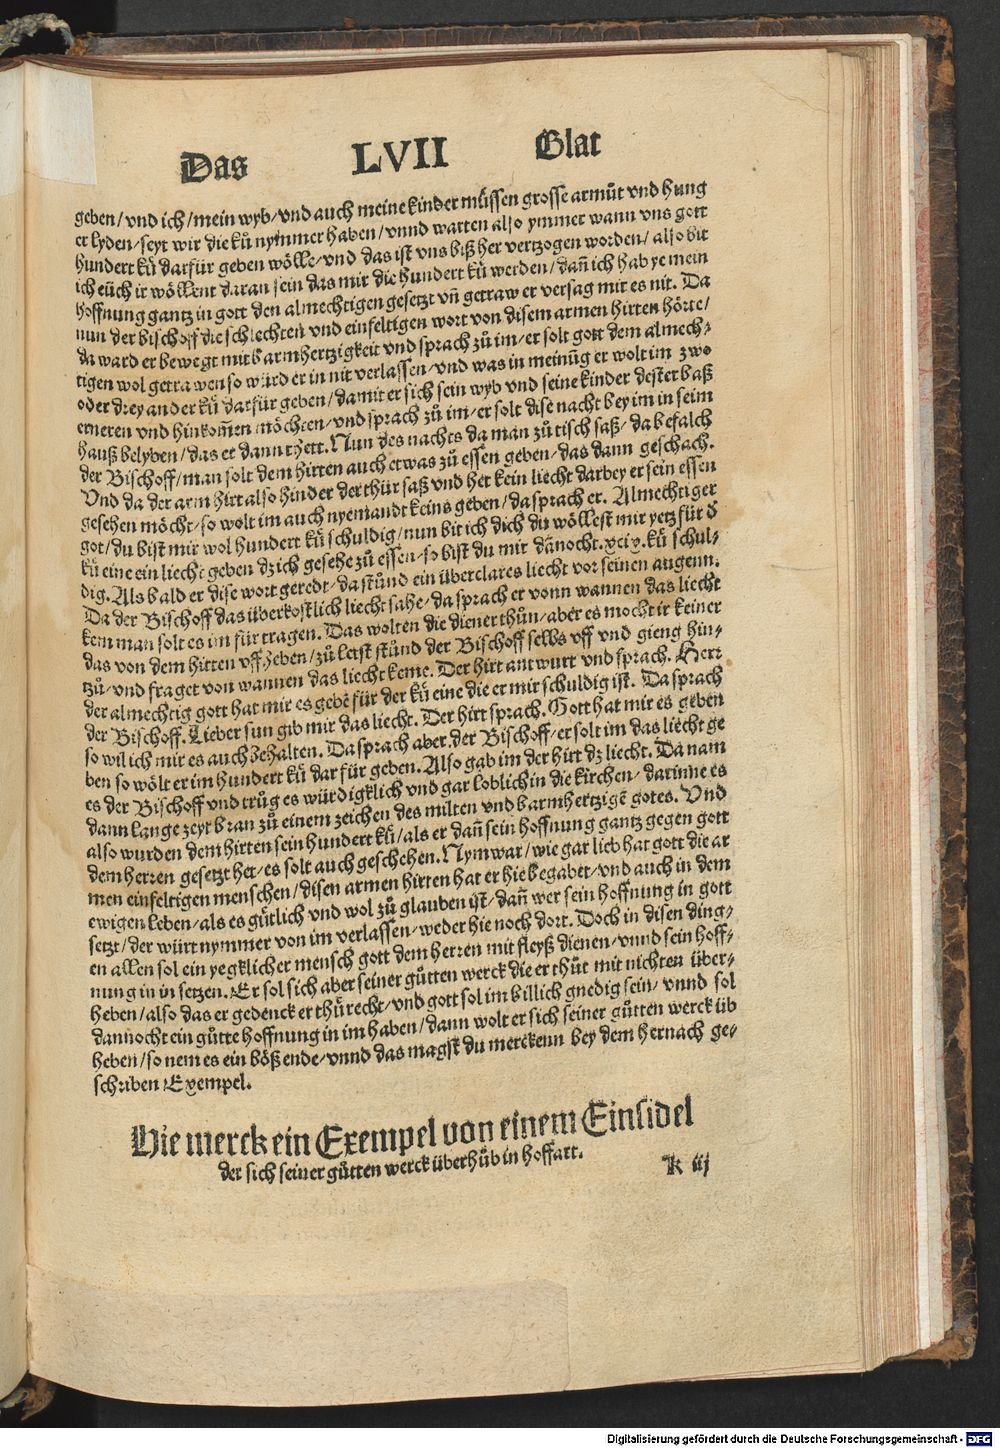 Das LVII Blat
geben/ vnd ich/ mein wyb/ vnd auch meine kinder müssen grosse armůt vnd hung
er lyden/ seyt wir die ků nymmer haben/ vnnd warten also ymmer wann vns gott
hundert kü darfür geben wölle/ vnd das ist vns biß her vertzogen worden/ also bit
ich eüch ir wöllent daran sein das mir die hundert kü werden/ dañ ich hab ye mein
hoffnung gantz in gott den almechtigen gesetzt vñ getraw er versag mir es nit. Da
nun der bischoff die schlechten vnd einfeltigen wort von disem armen hirten hörte/
da ward er bewegt mit barmhertzigkeit vnd sprach zů im/ er solt gott dem almech-
tigen wol getrawen so würd er in nit verlassen/ vnd was in meinũg er wolt im zwo
oder drey ander kü darfür geben/ damit er sich sein wyb vnd seine kinder dester baß
erneren vnd hinkom̃en möchten/ vnd sprach zů im/ er solt dise nacht bey im in seim
hauß belyben/ das er dann thett. Nun des nachts da man zů tisch saß/ da befalch
der Bischoff/ man solt dem hirten auch etwas zů essen geben/ das dann geschach.
Vnd da der arm hirt also hinder der thür saß vnd het kein liecht darbey er sein essen
gesehen möcht/ so wolt im auch nyemandt keins geben/ da sprach er. Almechtiger
got/ du bist mir wol hundert kü schuldig/ nun bit ich dich du wöllest mir yetz für d̕
kü eine ein liecht geben dz ich gesehe zů essen/ so bist du mir dãnocht .xcix. kü schul-
dig. Als bald er dise wort geredt/ da stůnd ein überclares liecht vor seinen augenn.
Da der Bischoff das überkostlich liecht sahe/ da sprach er vonn wannen das liecht
kem man solt es im für tragen. Das wolten die diener thůn/ aber es mocht ir keiner
das von dem hirten vffheben/ zů letst stůnd der Bischoff selbs vff vnd gieng hin-
zů/ vnd fraget von wannen das liecht keme. Der hirt antwurt vnd sprach. Herr
der almechtig gott hat mir es gebẽ für der kü eine die er mir schuldig ist. Da sprach
der Bischoff. Lieber sun gib mir das liecht. Der hirt sprach. Gott hat mir es geben
so wil ich mir es auch behalten. Da sprach aber der Bischoff/ er solt im das liecht ge
ben so wölt er im hundert kü dar für geben. Also gab im der hirt dz liecht. Da nam
es der Bischoff vnd trůg es würdigklich vnd gar loblich in die kirchen/ darinne es
dann lange zeyt bran zů einem zeichen des milten vnd barmhertzigẽ gotes. Vnd
also wurden dem hirten sein hundert kü/ als er dañ sein hoffnung gantz gegen gott
dem herren gesetzt het/ es solt auch geschehen. Nym war/ wie gar lieb hat gott die ar
men einfeltigen menschen/ disen armen hirten hat er hie begabet/ vnd auch in dem
ewigen leben/ als es gütlich vnd wol zů glauben ist/ dañ wer sein hoffnung in gott
setzt/ der würt nymmer von im verlassen/ weder hie noch dort. Doch in disen ding-
en allen sol ein yegklicher mensch gott dem herren mit fleyß dienen/ vnnd sein hoff-
nung in in setzen. Er sol sich aber seiner gůtten werck die er thůt mit nichten über-
heben/ also das er gedenck er thü recht/ vnd gott sol im billich gnedig sein/ vnnd sol
dannocht ein gůtte hoffnung in im haben/ dann wolt er sich seiner gůtten werck üb
heben/ so nem es ein böß ende/ vnnd das magst du merckenn bey dem hernach ge-
schriben Exempel.
Hie merck ein Exempel von einem Einsidel
der sich seiner gůtten werck überhůb in hoffart.
K iij
Digitalisierung gefördert durch die Deutsche Forschungsgemeinschaft - DFG